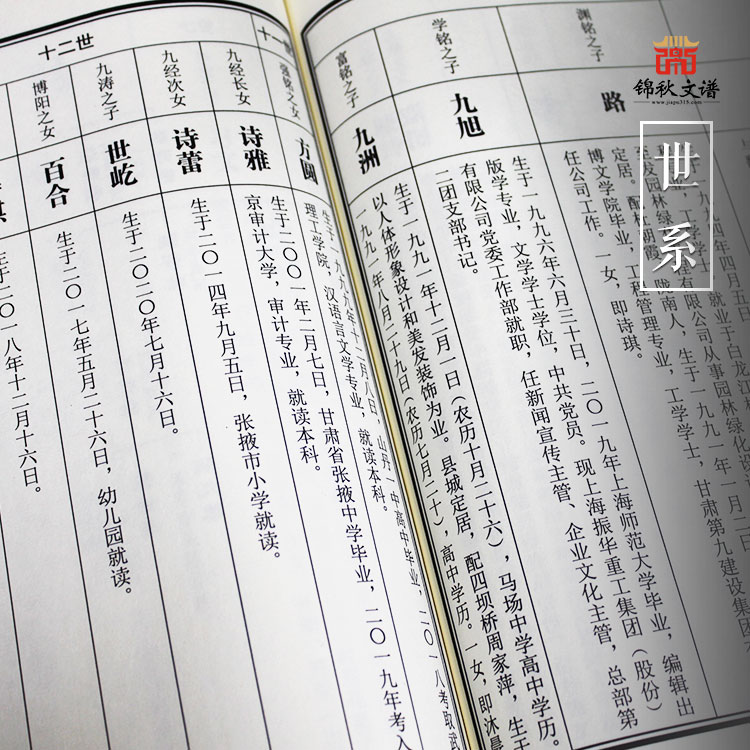 锦秋文谱
www.jiapu315.com
世系
渊铭之子
路
九四年四月五日
就业于白龙江林
有限公司从事园林绿化设
至发园林绿
定居。配杜朝霞，陇南人，生于一九九一年一月二日
博文学院毕业，工程管理专业，工学学士，甘肃第九建设集团
任公司工作。一女，即诗琪。
学铭之子
九旭
生于一九九六年六月三十日，二〇一九年上海师范大学毕业，编辑出
版学专业，文学学士学位，中共党员。现上海振华重工集团（股份）
有限公司党委工作部就职，任新闻宣传主管、企业文化主管，总部第
二团支部书记。
富铭之子
九洲
生于一九九一年十二月一日（农历十月二十六），马场中学高中学历。
以人体形象设计和美发装饰为业。县城定居，配四坝桥周家萍，生于
一九九一年八月二十九日（农历七月二十），高中学历。一女，即沐晨
十一世
铭之女
方圆
生于一九九九年十二月八日，山丹一中高中毕业，二〇一八考取武
理工学院，汉语言文学专业，就读本科。
十二世
九经长女
诗雅
生于二〇〇一年二月七日，甘肃省张掖中学毕业，二〇一九年考入
京审计大学，审计专业，就读本科。
九经次女
诗蕾
生于二〇一四年九月五日，张掖市小学就读。
九涛之子
世屹
生于二〇二〇年七月十六日。
博阳之女
百合
生于二〇一七年五月二十六日，幼儿园就读。
琪
生于二〇一八年十二月十六日。